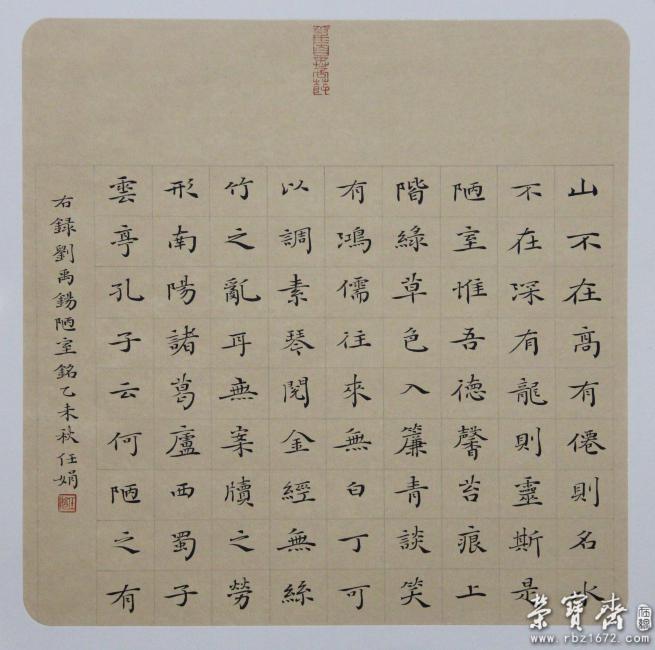 山不在高有僊則名水
不在深有龍則靈斯是
陋室惟吾德馨苔痕上
階綠草色入簾青談笑
有鴻儒往來無白丁可
以調素琴閱金經無絲
竹之亂耳無案牘之勞
形南陽諸葛廬西蜀子
雲亭孔子云何陋之有
右録劉禹錫陋室銘乙未秋任娟
榮寶齋
www.rbz1672.com